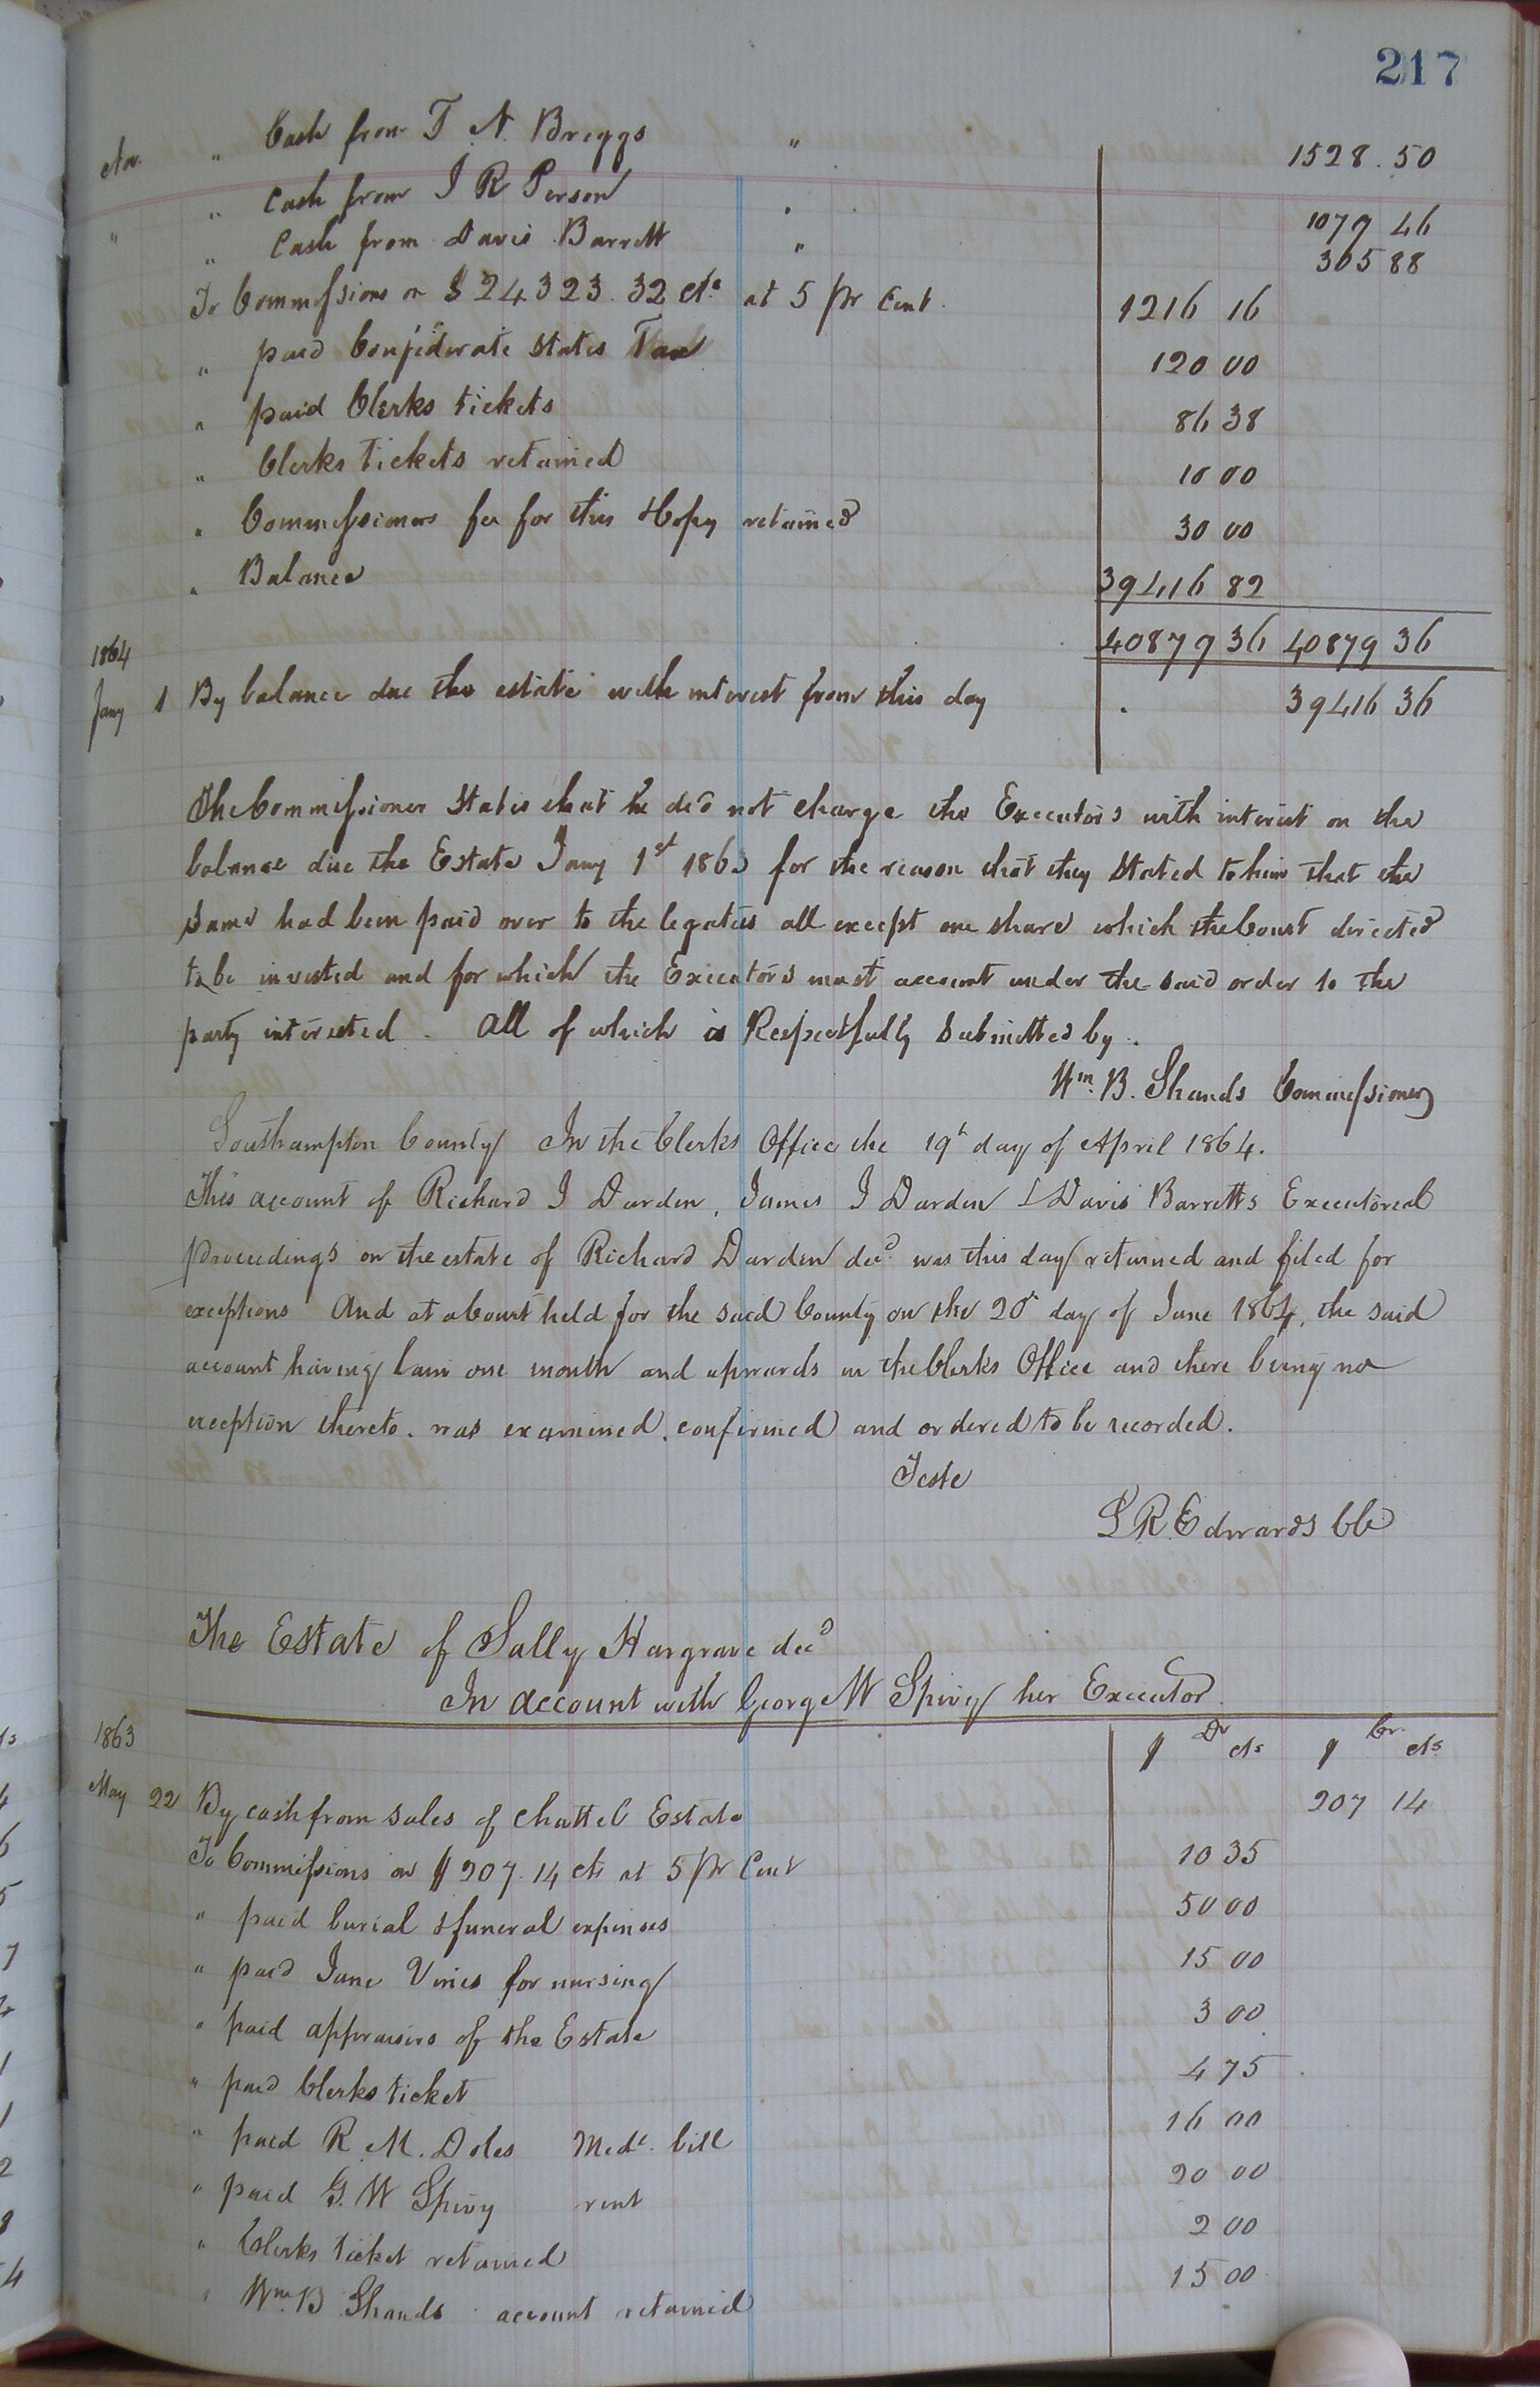 217
Nov. " Cash from T. N. Briggs " 1528.50
" Cash from J R Person " 1079 46
" " Cash from Davis Barrett " 305 88
To Commissions on $24323.32 cts at 5 pr Cent. 1216 16
" paid Confederate States Tax 120 00
" paid Clerks tickets 86 38
" Clerks tickets retained 10 00
" Commissioners fee for this & Copy retained 30 00
" Balance 39416 82
40879 36 40879 36
1864
Jany 1 By balance due the estate with interest from this day 39416 36
The Commissioner States that he did not charge the Executors with interest on the
balance due the Estate Jany 1st 1863 for the reason that they Stated to him that the
same had been paid over to the legatees all except one share which the Court directed
to be invested and for which the Executors must account under the said order to the
party interested. All of which is Respectfully Submitted by.
Wm. B. Shands Commissioner
Southampton County In the Clerks Office the 19th day of April 1864.
This account of Richard J Darden, James J Darden & Davis Barretts Executorial
proceedings on the estate of Richard Darden decd was this day returned and filed for
exceptions And at a Court held for the said County on the 20th day of June 1864, the said
account having lain one month and upwards in the Clerks Office and there being no
exception thereto. was examined, confirmed and ordered to be recorded.
Teste
L R Edwards Clk
The Estate of Sally Hargrave decd
In account with George W Spivy her Executor.
1863 $ Dr cts $ Cr. cts
May 22 By cash from sales of Chattel Estate 207 14
To Commissions on $207.14 cts at 5 pr Cent 10 35
" paid burial & funeral expenses 50 00
" paid Jane Vines for nursing 15 00
" paid appraisers of the Estate 3 00
" paid Clerks ticket 4 75
" paid R. M. Doles Medl. bill 16 00
" paid G. W Spivy rent 20 00
" Clerks ticket retained 2 00
" Wm. B Shands account retained 15 00